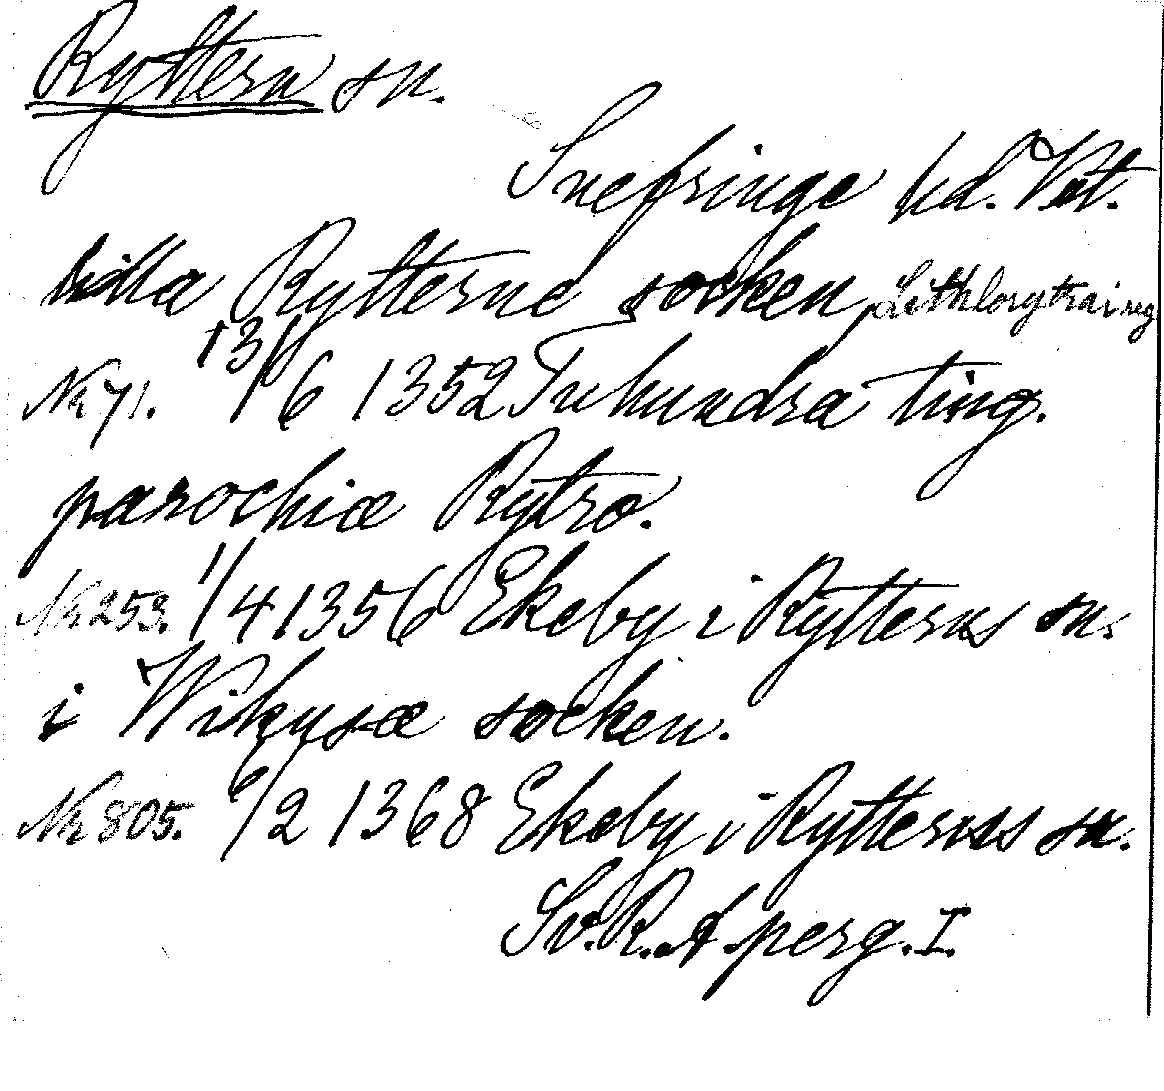 Ryttern sn.
Snefringe hd. Vst.
lilla Rytterne socken,
Nr 71. 13/6 1352 Tuhundra ting.
parochiæ Rytro.
Nr 253. 1/4 1356 Ekeby i Rytterns sn.
i Wikusæ socken.
Nr 805. 6/2 1368 Ekeby i Rytterns sn.
Sv. R. A. perg. I.